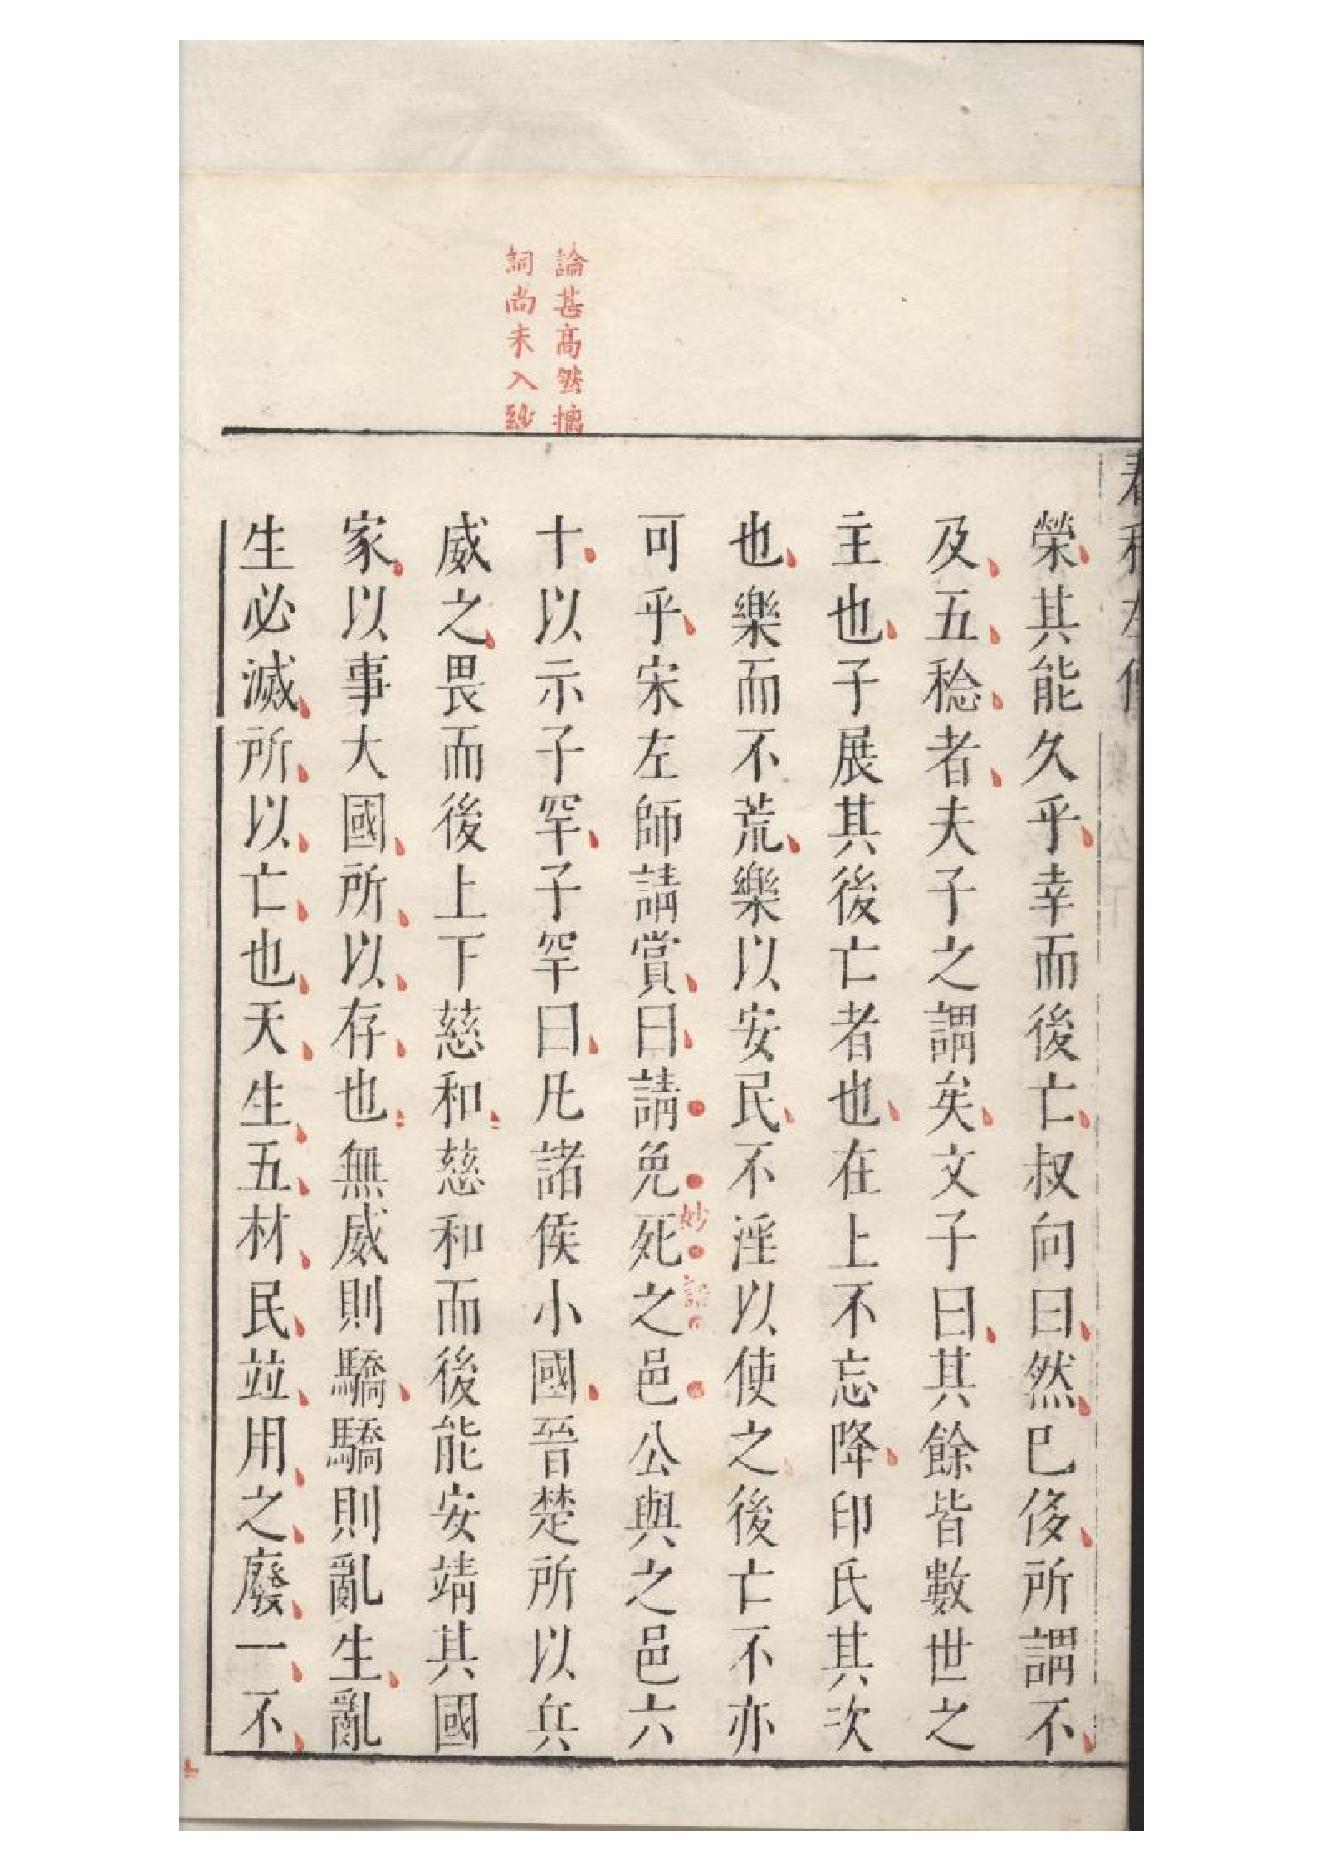 論甚高然摛
詞尚未入玅
春秋左傳
榮其能久乎幸而後亡叔向曰然已侈所謂不
及五稔者夫子之謂矣文子曰其餘皆數世之
主也子展其後亡者也在上不忘降印氏其次
也樂而不荒樂以安民不淫以使之後亡不亦
可乎宋左師請賞曰請免死之邑公與之邑六
妙語
十以示子罕子罕曰凡諸侯小國晉楚所以兵
威之畏而後上下慈和慈和而後能安靖其國
家以事大國所以存也無威則驕驕則亂生亂
生必滅所以亡也天生五材民並用之廢一不